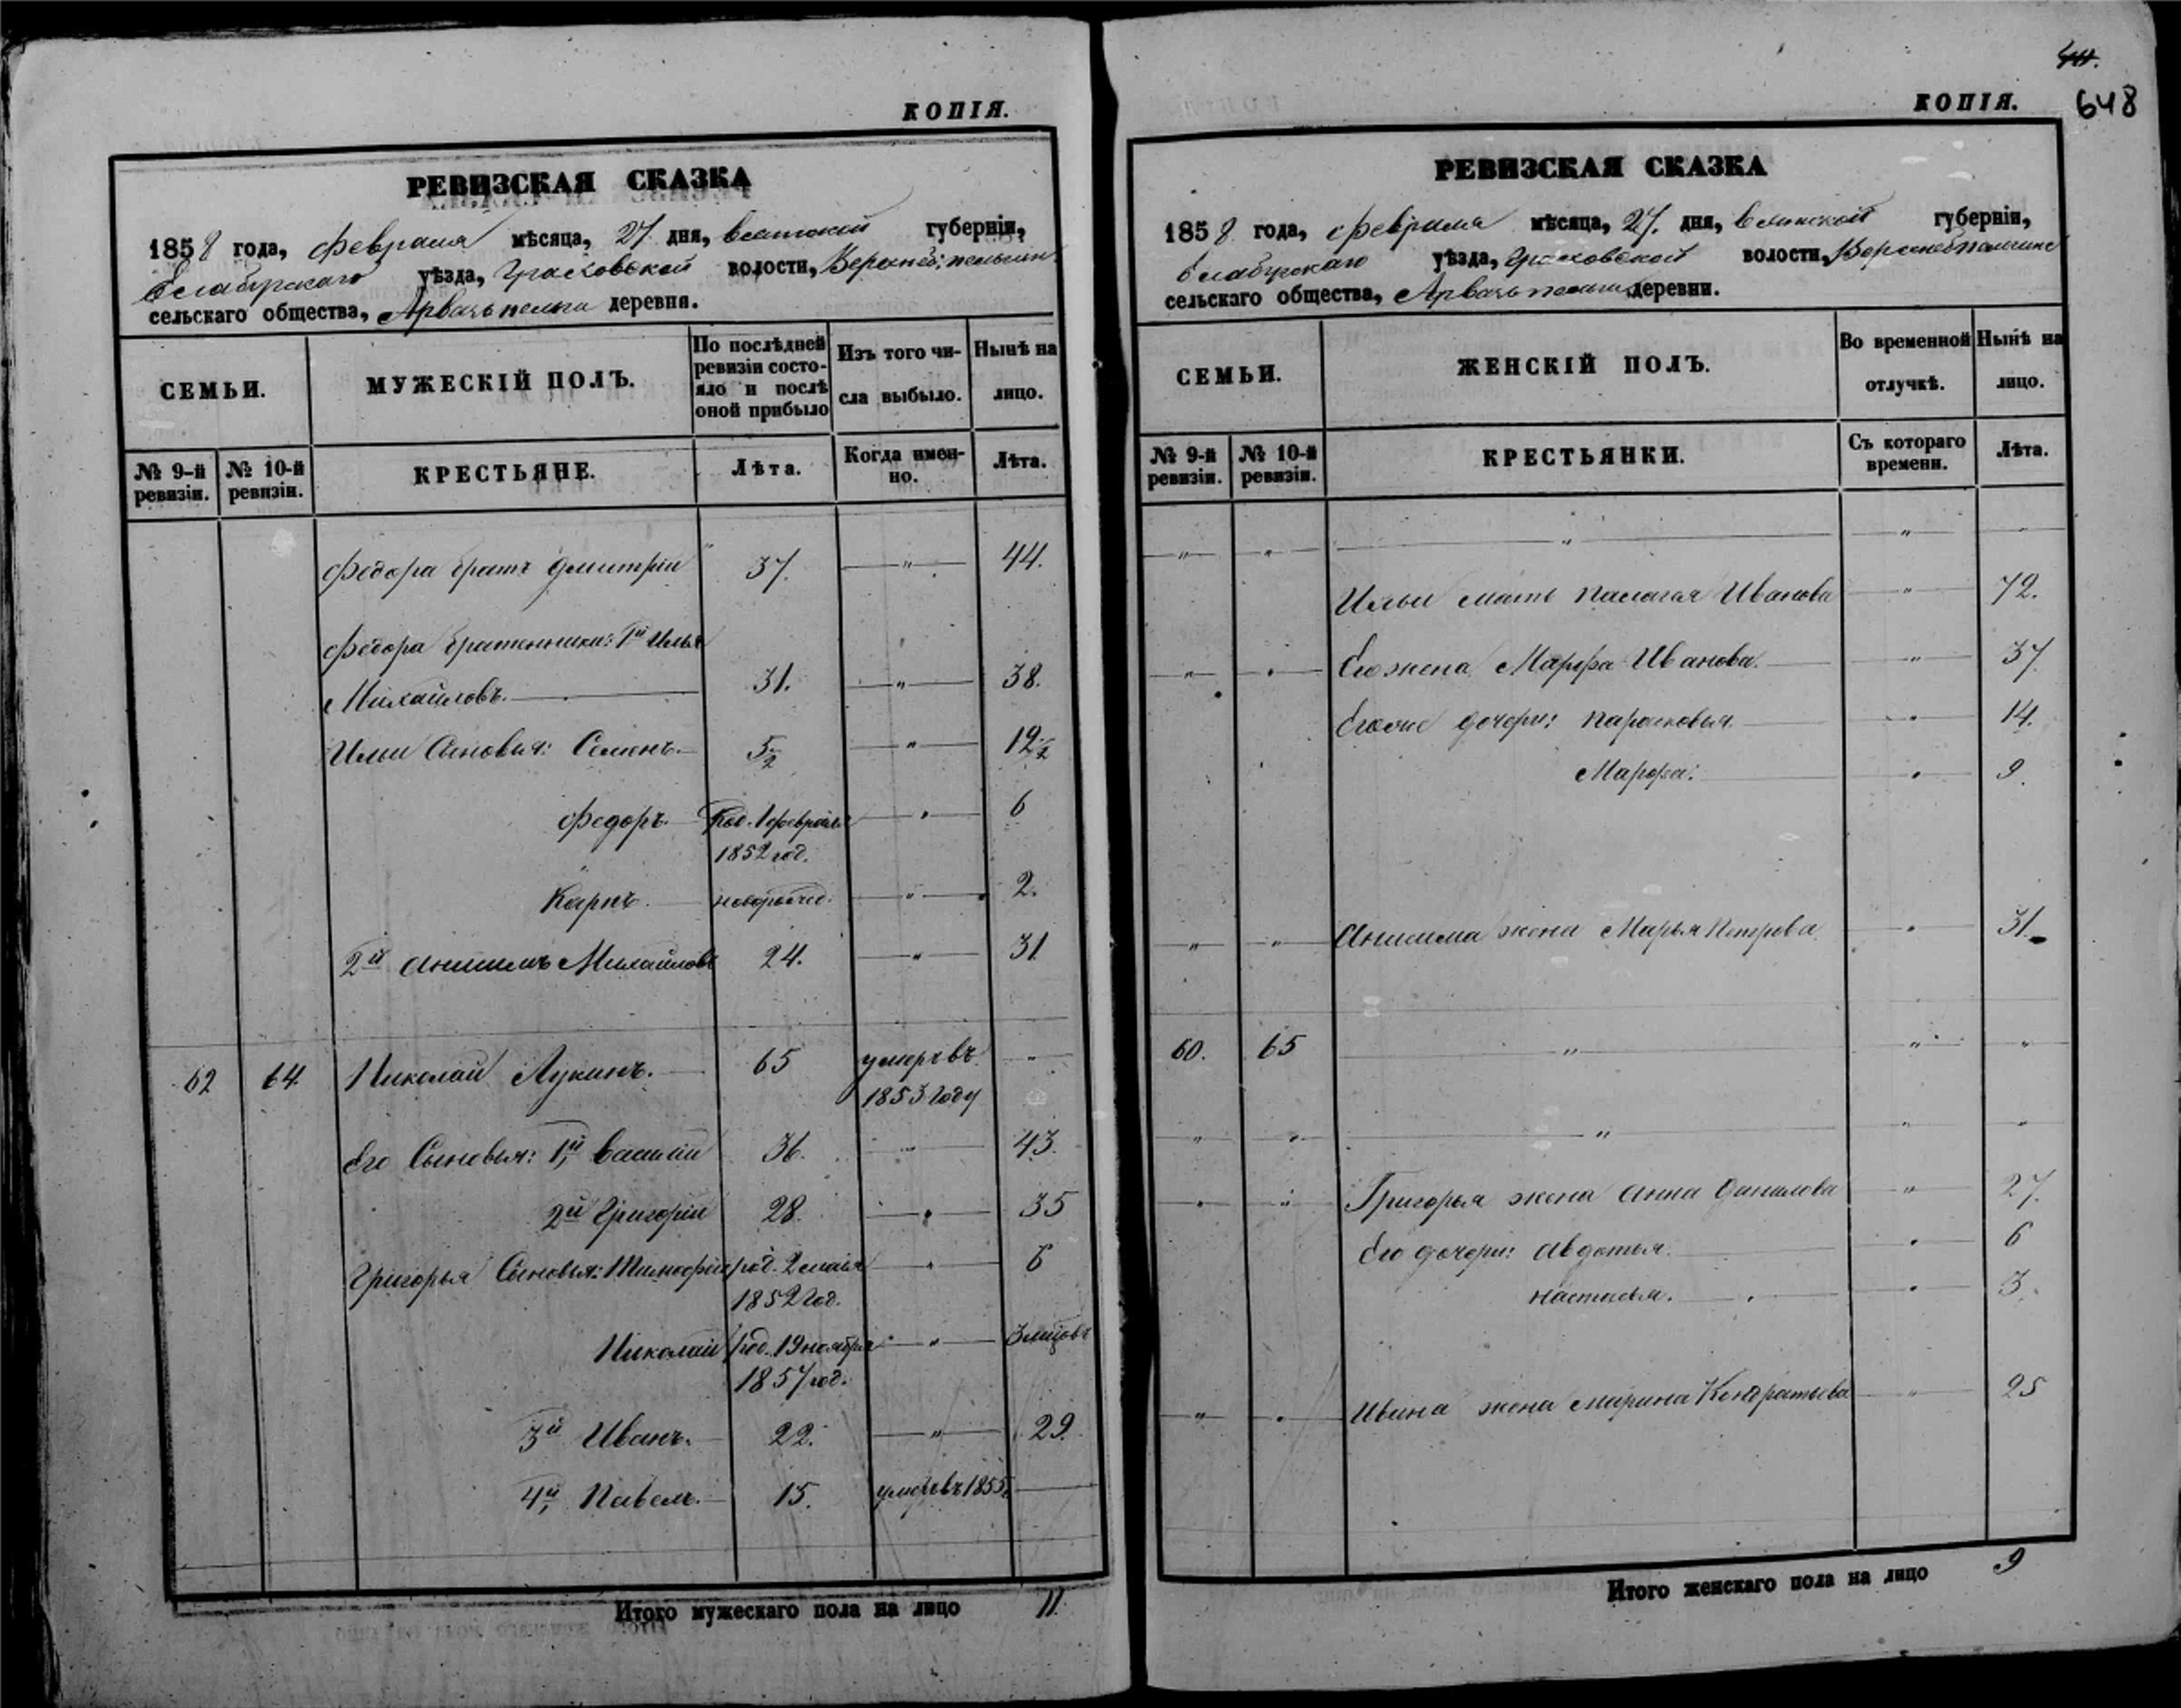 КОПІЯ.
РЕВИЗСКАЯ СКАЗКА
1858 года, Февраля мѣсяца, 27 дня, Вятской губерніи,
Елабурскаго уѣзда, Граховской волости,
сельскаго общества, Арвазь пельга деревня.
СЕМЬИ.
МУЖЕСКІЙ ПОЛЪ.
По послѣдней
ревизіи состо-
яло и послѣ
оной прибыло
Изъ того чи-
сла выбыло.
Нынѣ на
лицо.
№ 9-й
ревизіи.
№ 10-й
ревизіи.
КРЕСТЬЯНЕ.
Лѣта.
Когда имен-
но.
Лѣта.
Федора братъ Дмитрій 37. — " — 44.
Федора братенники: 1й Илья
Михайловъ. 31. — " — 38.
Ильи Сыновья: Семенъ. 5½ — " — 12½
Федоръ. Род. 1 февраля — " — 6
1852 год.
Карпъ. новорожд. — " — 2.
2й Анисимъ Михайловъ 24. — " — 31
62 64 Николай Лукинъ. 65 умеръ въ "
1853 году
Его Сыновья: 1й Василій 36. " 43.
2й Григорій 28. — " — 35
Григорья Сыновья: Тимофей род. 2 маія — " — 6
1852 год.
Николай род. 19 ноября — " — 3 мцовъ
1857 год.
3й Иванъ. 22. — " — 29.
4й Павелъ. 15. умеръ въ 1855 —
Итого мужескаго пола на лицо 11.
648
КОПІЯ.
РЕВИЗСКАЯ СКАЗКА
1858 года, Февраля мѣсяца, 27. дня, Вятской губерніи,
Елабурскаго уѣзда, Граховской волости,
сельскаго общества, Арвазь пельга деревни.
СЕМЬИ.
ЖЕНСКІЙ ПОЛЪ.
Во временной
отлучкѣ.
Нынѣ на
лицо.
№ 9-й
ревизіи.
№ 10-й
ревизіи.
КРЕСТЬЯНКИ.
Съ котораго
времени.
Лѣта.
" " " " "
Ильи мать Палагея Иванова " 72.
" " Его жена Марфа Иванова. " 37
Егоже дочери: Парасковья. " 14.
Марфа. " 9
" " Анисима жена Марья Петрова " 31.
60. 65 " " "
" " " " "
" " Григорья жена Анна Данилова " 27.
Его дочери: Авдотья. " 6
Настасья. " 3.
" " Ивана жена Марина Кондратьева " 25
Итого женскаго пола на лицо 9